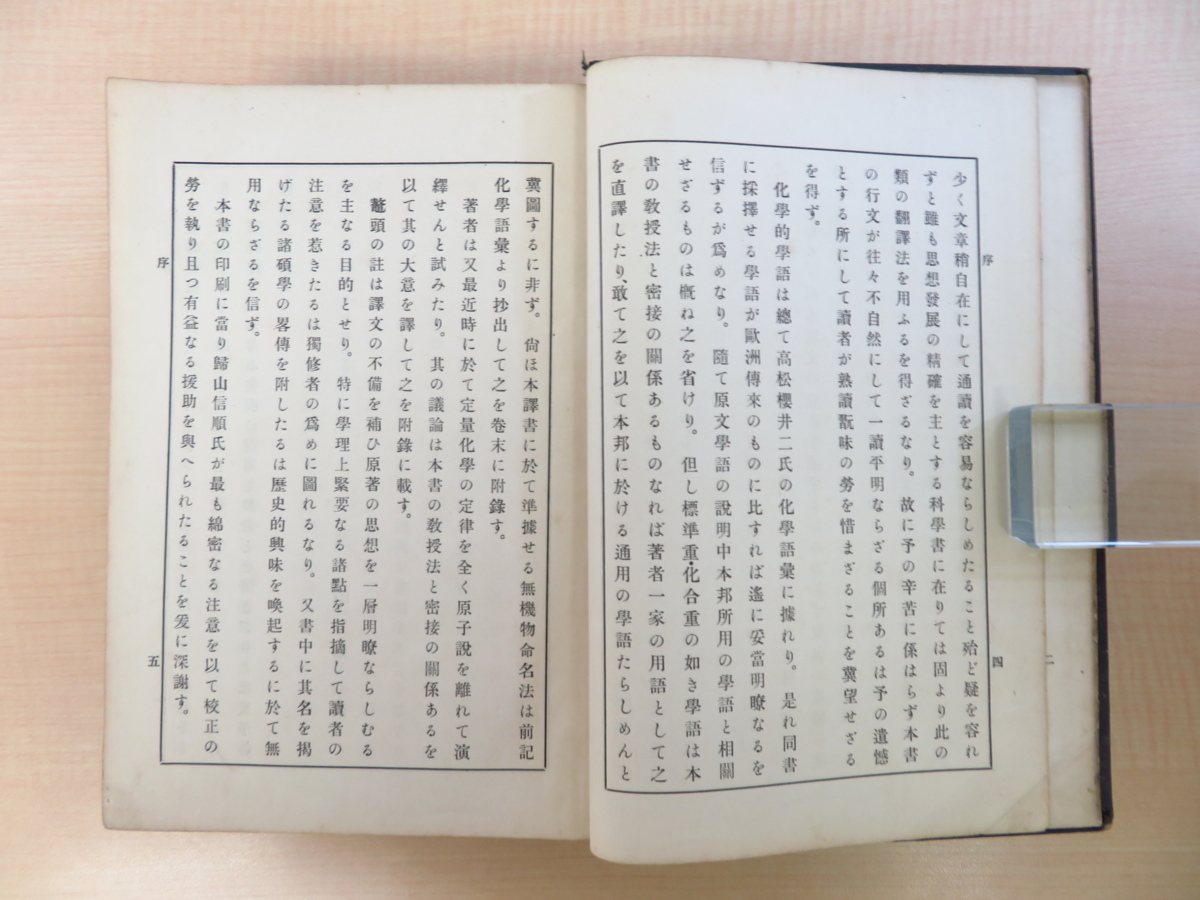 序
四
少く文章稍自在にして通讀を容易ならしめたること殆ど疑を容れ
ずと雖も思想發展の精確を主とする科學書に在りては固より此の
類の翻譯法を用ふるを得ざるなり。故に予の辛苦に係はらず本書
の行文が往々不自然にして一讀平明ならざる個所あるは予の遺憾
とする所にして讀者が熟讀翫味の勞を惜まざることを冀望せざる
を得ず。
化學的學語は總て高松櫻井二氏の化學語彙に據れり。是れ同書
に採擇せる學語が歐洲傳來のものに比すれば遙に妥當明瞭なるを
信ずるが爲めなり。隨て原文學語の說明中本邦所用の學語と相關
せざるものは槪ね之を省けり。但し標準重・化合重の如き學語は本
書の敎授法と密接の關係あるものなれば著者一家の用語として之
を直譯したり、敢て之を以て本邦に於ける通用の學語たらしめんと
冀圖するに非ず。尙ほ本譯書に於て準據せる無機物命名法は前記
化學語彙より抄出して之を卷末に附錄す。
著者は又最近時に於て定量化學の定律を全く原子說を離れて演
繹せんと試みたり。其の議論は本書の敎授法と密接の關係あるを
以て其の大意を譯して之を附錄に載す。
鼇頭の註は譯文の不備を補ひ原著の思想を一層明瞭ならしむる
を主なる目的とせり。特に學理上緊要なる諸點を指摘して讀者の
注意を惹きたるは獨修者の爲めに圖れるなり。又書中に其名を揭
げたる諸碩學の畧傳を附したるは歷史的興味を喚起するに於て無
用ならざるを信ず。
本書の印刷に當り歸山信順氏が最も綿密なる注意を以て校正の
勞を執り且つ有益なる援助を與へられたることを爰に深謝す。
序
五
二